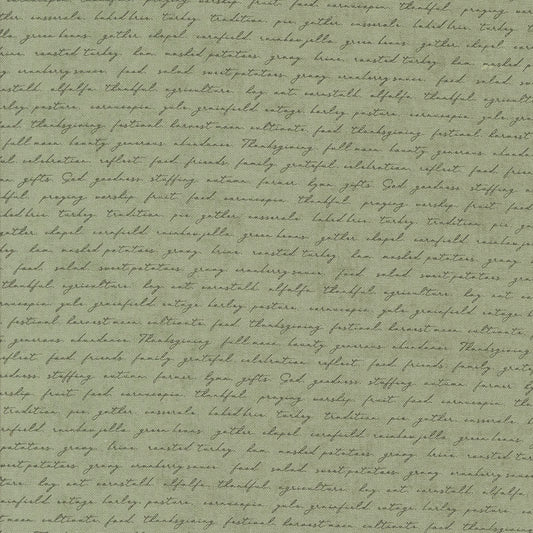 fruit, food, cornucopia, thankful, praying, worship
gather casserole, baked brie, turkey, tradition, pie, gather casserole, baked brie, turkey,
green beans, gather, chapel, cornfield, rainbow jello, green beans, gather, chapel,
brine, roasted turkey, ham, mashed potatoes, gravy, brine, roasted turkey, ham, mashed
cranberry sauce, food, salad, sweet potatoes, gravy, cranberry sauce, food, salad,
cornstalk, alfalfa, thankful, agriculture, hay, oat, cornstalk, alfalfa, thankful,
barley, pasture, cornucopia, yule, grainfield, cotage, barley, pasture, cornucopia, yule,
food, thanksgiving, festival, harvest moon, cultivate, food, thanksgiving, festival, harvest
full moon, bounty, generous, abundance, Thanksgiving, full moon, bounty, generous,
celebration, reflect, food, friends, family, grateful, celebration, reflect, food, friends,
gifts, God, goodness, stuffing, autumn, farmer, hymn, gifts, God, goodness, stuffing,
praying, worship, fruit, food, cornucopia, thankful, praying, worship, fruit, food
baked brie, turkey, tradition, pie, gather casserole, baked brie, turkey, tradition, pie
gather, chapel, cornfield, rainbow jello, green beans, gather, chapel, cornfield,
ham, mashed potatoes, gravy, brine, roasted turkey, ham, mashed potatoes, gravy,
food, salad, sweet potatoes, gravy, cranberry sauce, food, salad, sweet potatoes,
thankful, agriculture, hay, oat, cornstalk, alfalfa, thankful, agriculture, hay, oat,
yule, grainfield, cotage, barley, pasture, cornucopia, yule, grainfield, cotage
festival, harvest moon, cultivate, food, thanksgiving, festival, harvest moon, cultivate,
generous, abundance, Thanksgiving, full moon, bounty, generous, abundance, Thanksgiving
reflect, food, friends, family, grateful, celebration, reflect, food, friends, family,
goodness, stuffing, autumn, farmer, hymn, gifts, God, goodness, stuffing, autumn, farmer,
fruit, food, cornucopia, thankful, praying, worship, fruit, food, cornucopia,
pie, gather casserole, baked brie, turkey, tradition, pie, gather casserole,
cornfield, rainbow jello, green beans, gather, chapel, cornfield, rainbow jello, green beans,
potatoes, gravy, brine, roasted turkey, ham, mashed potatoes, gravy, brine, roasted
sweet potatoes, gravy, cranberry sauce, food, salad, sweet potatoes, gravy, cranberry sauce
hay, oat, cornstalk, alfalfa, thankful, agriculture, hay, oat, cornstalk, alfalfa,
grainfield, cotage, barley, pasture, cornucopia, yule, grainfield, cotage, barley, pasture,
cultivate, food, thanksgiving, festival, harvest moon, cultivate, food, thanksgiving,